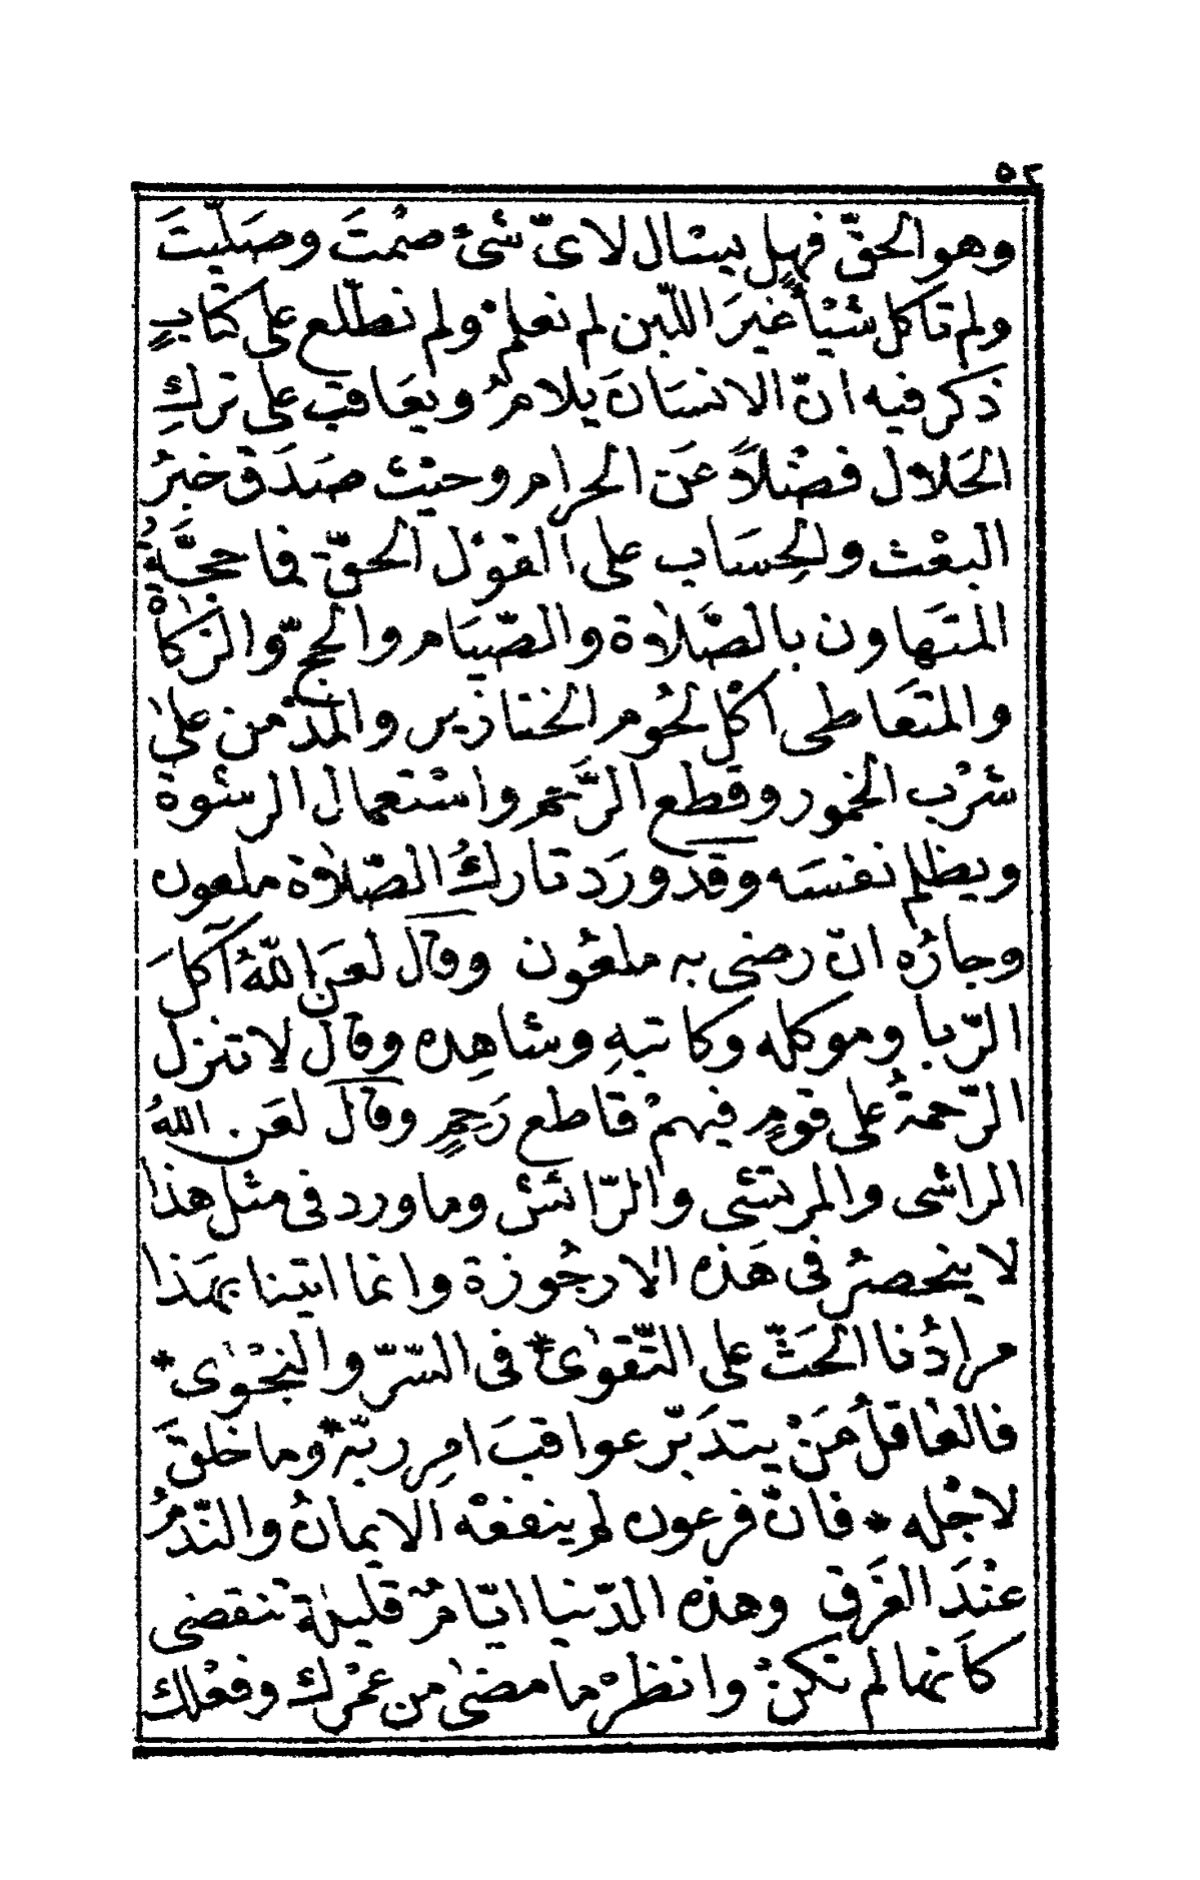 ٥٢
وهو الحقّ فهل يسئال لاىّ شئ صُمتَ وصَلّيتَ
ولم تأكل شيْأً غيرَ اللّبن لم نعلمْ ولم نطّلع على كتابٍ
ذكر فيه انّ الانسَانَ يلامُ ويعَاقب على تركِ
الحَلال فضْلاً عَن الحرام وحيْث صَدَق خبرُ
البعْث ولحِسَاب على القوْل الحقّ فما حجَّةُ
المتَهاون بالصَّلاة والصّيَام والحجّ والزكاة
والمتعَاطى اكْل لحُوم الخنازير والمدْمن على
شرْب الخمور وقطع الرَّحم واسْتعمال الرشوة
ويظلم نفسَه وقد ورَد تاركُ الصّلاة ملعون
وجارُه انّ رضى به ملعُون وقال لعَن اللّهُ آكلَ
الرّبا وموكله وكاتبهِ وشاهِده وقال لا تنزل
الرّحمةُ على قومٍ فيهمْ قاطع رَحِمٍ وقال لعَن اللهُ
الراشى والمرتشى والرّائش وما ورد فى مثل هذا
لا ينحصرُ فى هَذه الارجُوزة وانما اتينا بهَذا
مرادُنا الحَثّ على التّقوٰى * فى السّرّ والنجْوٰى *
فالعٰاقلُ مَنْ يتدَبّر عواقبَ امرِ ربّه * وما خلقَ
لاجْله * فانّ فرعون لم ينفعْه الايمانُ والنّدمُ
عنْدَ الغَرق وهذه الدّنيا ايّامٌ قليلة تنقضى
كأنها لم تكنْ وانظرْ ما مضىٰ من عمْرك وفعْلك